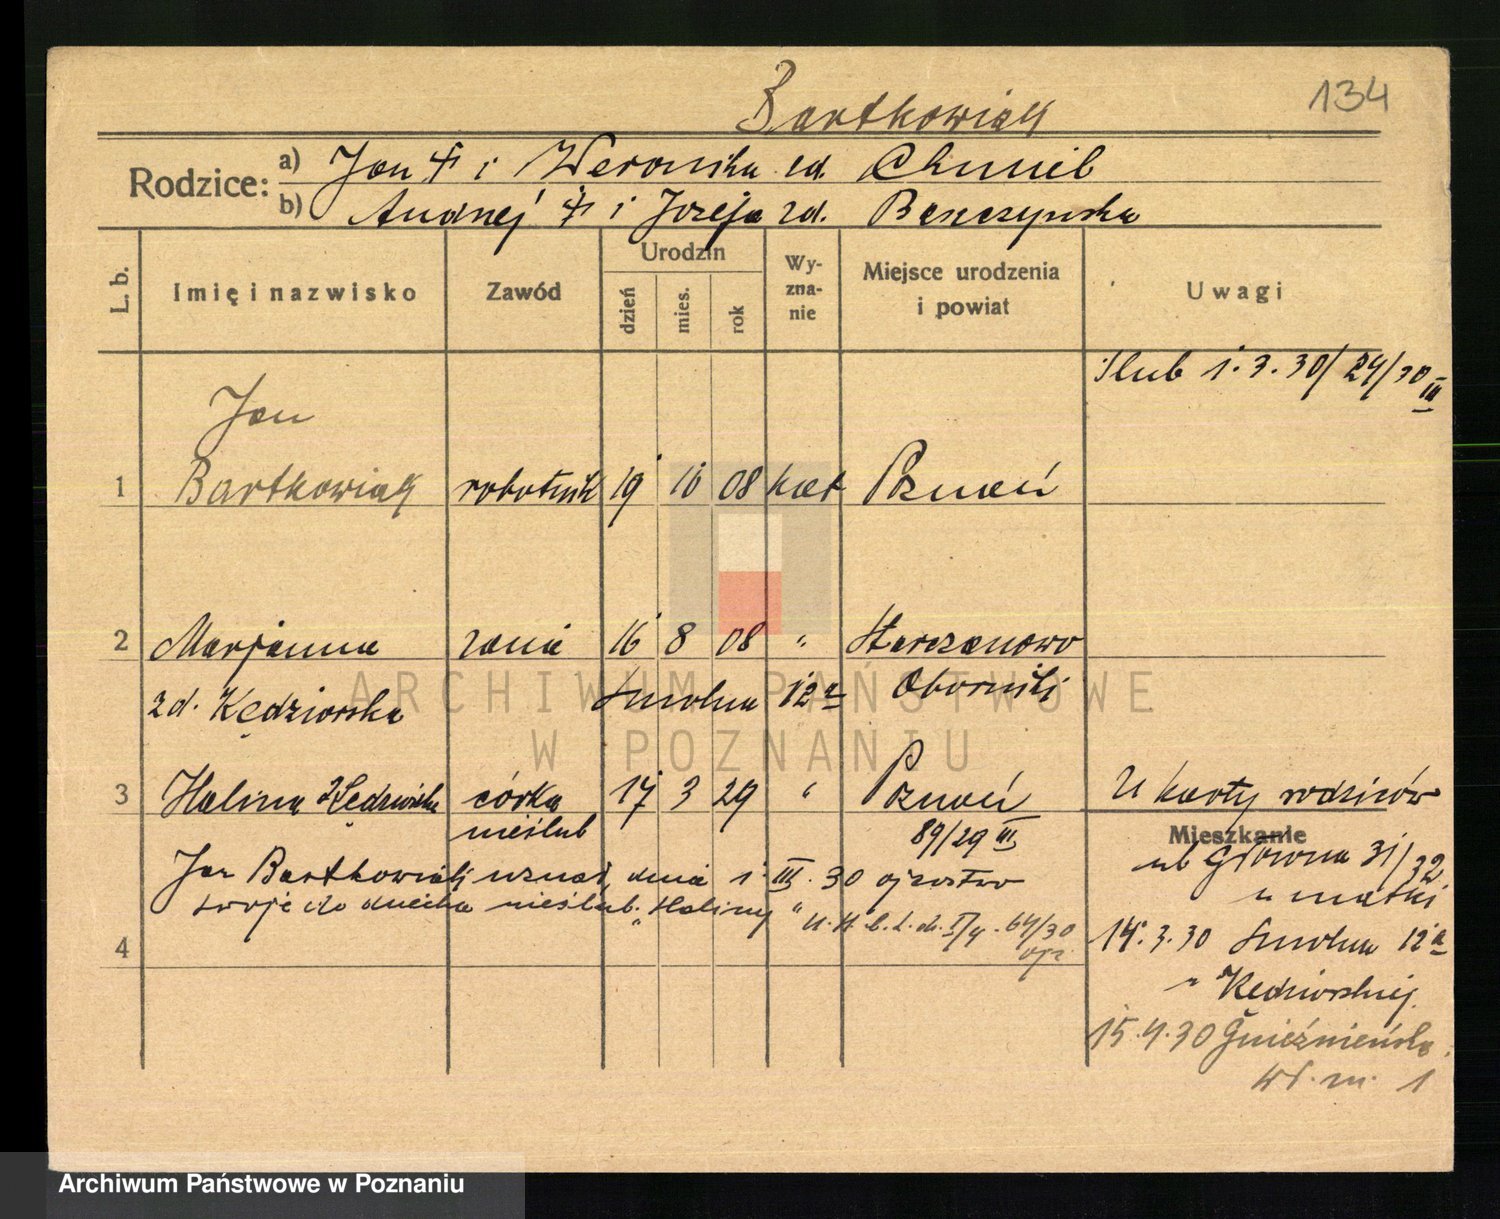 Bartkowiak
134
Rodzice: a) Jan i Weronika zd. Chmiel
b) Andrzej i Józefa zd.
L. b. Imię i nazwisko Zawód Urodzin dzień mies. rok Wy-zna-nie Miejsce urodzenia i powiat Uwagi
Ślub 1. 3. 30/ 24/30 III
Jan
1 Bartkowiak robotnik 19 10 08 kat Poznań
2 Marjanna żona 16 8 08 " Starczanowo
zd. Kędziorska Smolna 12a Oborniki
3 Halina Kędziorska córka 17 3 29 " Poznań U karty rodziców
nieślub 89/29 III
Mieszkanie
Jan Bartkowiak uznał dnia 1. III. 30 ojcostwo
swoje do dziecka nieślub. "Haliny"
64/30
ul Główna 31/32
u matki
4
14. 3. 30 Smolna 12a
u Kędziorskiej
15. 4. 30 Gnieźnieńska
wł. m. 1
ARCHIWUM PAŃSTWOWE
W POZNANIU
Archiwum Państwowe w Poznaniu